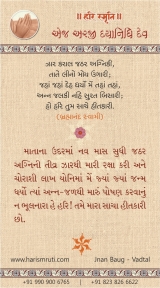 ॥ હરિ સ્મૃતિ ॥
એજ અરજી દયાનિધિ દેવ
ત્રાય કરાલ જઠર અગ્નિકી,
તાતે લીનો મોય ઉગારી;
જહાં જહાં દેહ ધર્યો મેં તહાં તહાં,
અન્ન જલકી નહિ સુરત બિસારી;
હો હરિ તુમ સાચે હીતકારી.
(બ્રહ્માનંદ સ્વામી)
માતાના ઉદરમાં નવ માસ સુધી જઠર
અગ્નિની તીવ્ર ઝારથી મારી રક્ષા કરી અને
ચોરાશી લાખ યોનિમાં મેં જ્યાં જ્યાં જન્મ
ધર્યો ત્યાં અન્ન-જળથી મારું પોષણ કરવાનું
ન ભૂલનારા હે હરિ! તમે મારા સાચા હીતકારી
છો.
www.harismruti.com
Jnan Baug - Vadtal
+91 990 900 6765
+91 823 826 6622